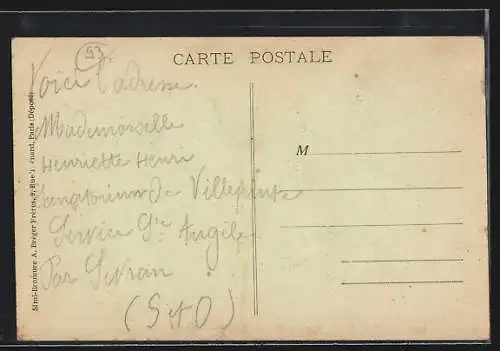 93
CARTE POSTALE
Voici l'adresse.
Mademoiselle
Henriette Henri
Sanatorium de Villepinte
Service Ste Angèle
Par Sevran
(S et O)
M
Simi-Bromure A. Breger Frères, 9, Rue Paris (Déposé)